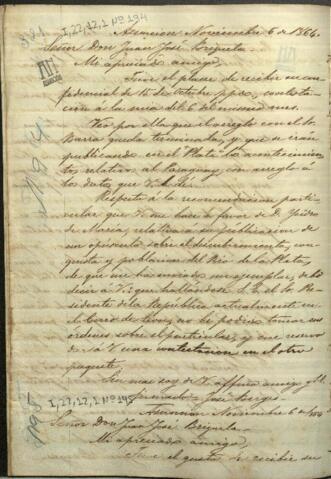 381 I,22,12,1 Nº 194
Asuncion Noviembre 6 de 1864.
Señor Don Juan José Brizuela.
Mi apreciado amigo,
Tuve el placer de recibir su con
fidencial de 15 de Octubre ppdo, contesta
cion á la mia del 6 del mismo mes.
Veo por ella que el arreglo con el Sr.
Barra queda terminado, y que se irán
publicando en el Plata los acontecimien
tos relativos al Paraguay, con arreglo á
los datos que V. le dé.
Respecto á la recomendacion parti-
cular que V. me hace á favor de D. Isidoro
de Maria, relativa á su publicacion de
un opúsculo sobre el descubrimiento, con
quista y poblacion del Rio de la Plata,
de que me ha enviado un ejemplar, debo
decir á V. que hallandose S. E. el Sr. Pre
sidente de la República actualmente en
Cerro de Leon, no he podido tomar sus
órdenes sobre el particular, y que reservo
dar á V. una contestacion en el otro
paquete.
Sin mas soy de V. affmo amigo y S.S.
Firmado: José Berges.
Nº 195 I,22,12,1 Nº 195
Asuncion Noviembre 6 de 1864
Señor Don Juan José Brizuela.
Mi apreciado amigo,
Tuve el gusto de recibir su